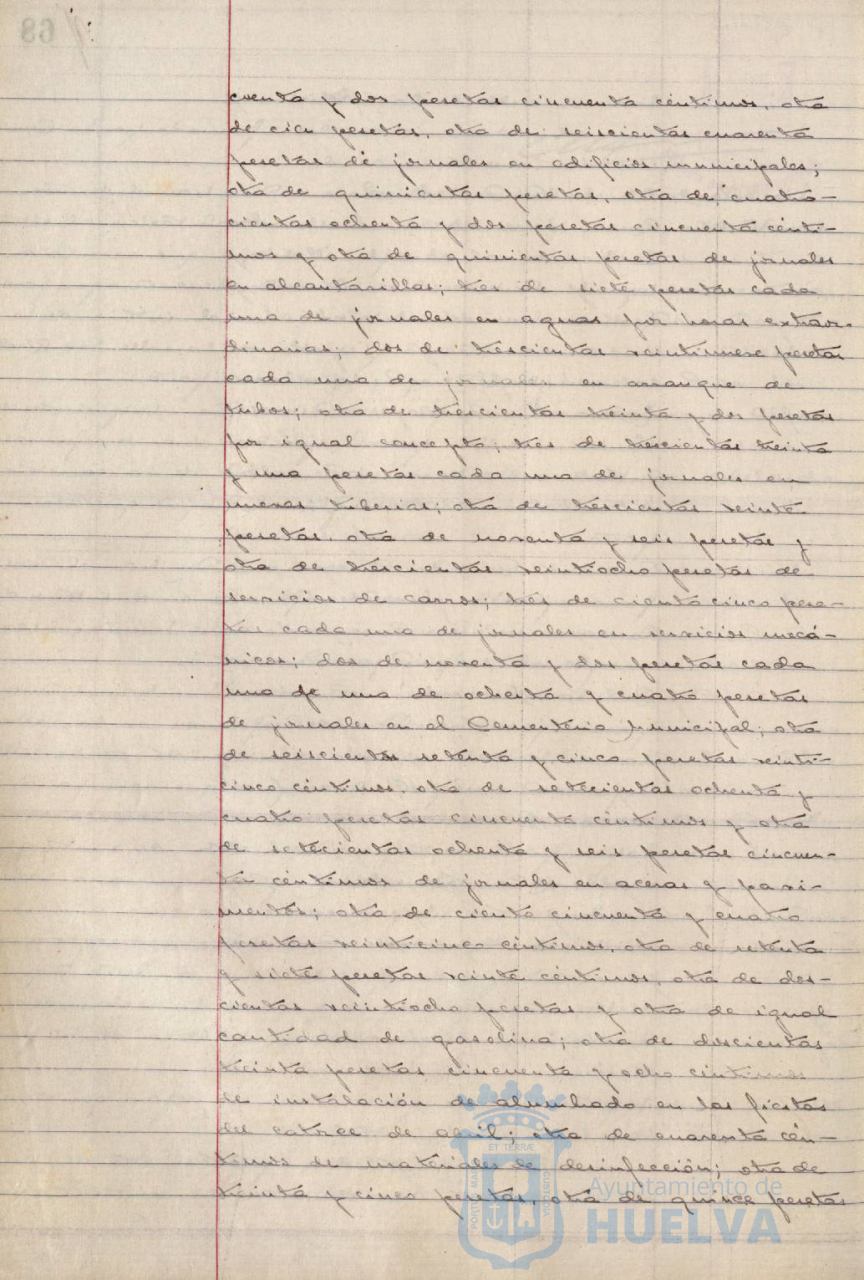 68
cuenta y dos pesetas cincuenta céntimos, otra
de cien pesetas, otra de seiscientas cuarenta
pesetas de jornales en edificios municipales;
otra de quinientas pesetas, otra de cuatro-
cientas ochenta y dos pesetas cincuenta cénti-
mos y otra de quinientas pesetas de jornales
en alcantarillas; tres de siete pesetas cada
una de jornales en aguas por horas extraor-
dinarias; dos de trescientas veintinueve pesetas
cada una de jornales en arranque de
tubos; otra de trescientas treinta y dos pesetas
por igual concepto; tres de trescientas treinta
y una pesetas cada una de jornales en
nuevas tuberias; otra de trescientas veinte
pesetas, otra de noventa y seis pesetas y
otra de trescientas veintiocho pesetas de
servicios de carros; tres de ciento cinco pese-
tas cada una de jornales en servicios mecá-
nicos; dos de noventa y dos pesetas cada
una y una de ochenta y cuatro pesetas
de jornales en el Cementerio Municipal; otra
de seiscientas setenta y cinco pesetas veinti-
cinco céntimos, otra de setecientas ochenta y
cuatro pesetas cincuenta céntimos y otra
de setecientas ochenta y seis pesetas cincuen-
ta céntimos de jornales en aceras y pavi-
mentos; otra de ciento cincuenta y cuatro
pesetas veinticinco céntimos, otra de setenta
y siete pesetas veinte céntimos, otra de dos-
cientas veintiocho pesetas y otra de igual
cantidad de gasolina; otra de doscientas
treinta pesetas cincuenta y ocho céntimos
de instalación de alumbrado en las fiestas
del catorce de abril; otra de cuarenta cén-
timos de materiales de desinfección; otra de
treinta y cinco pesetas, otra de quince pesetas
Ayuntamiento de
HUELVA